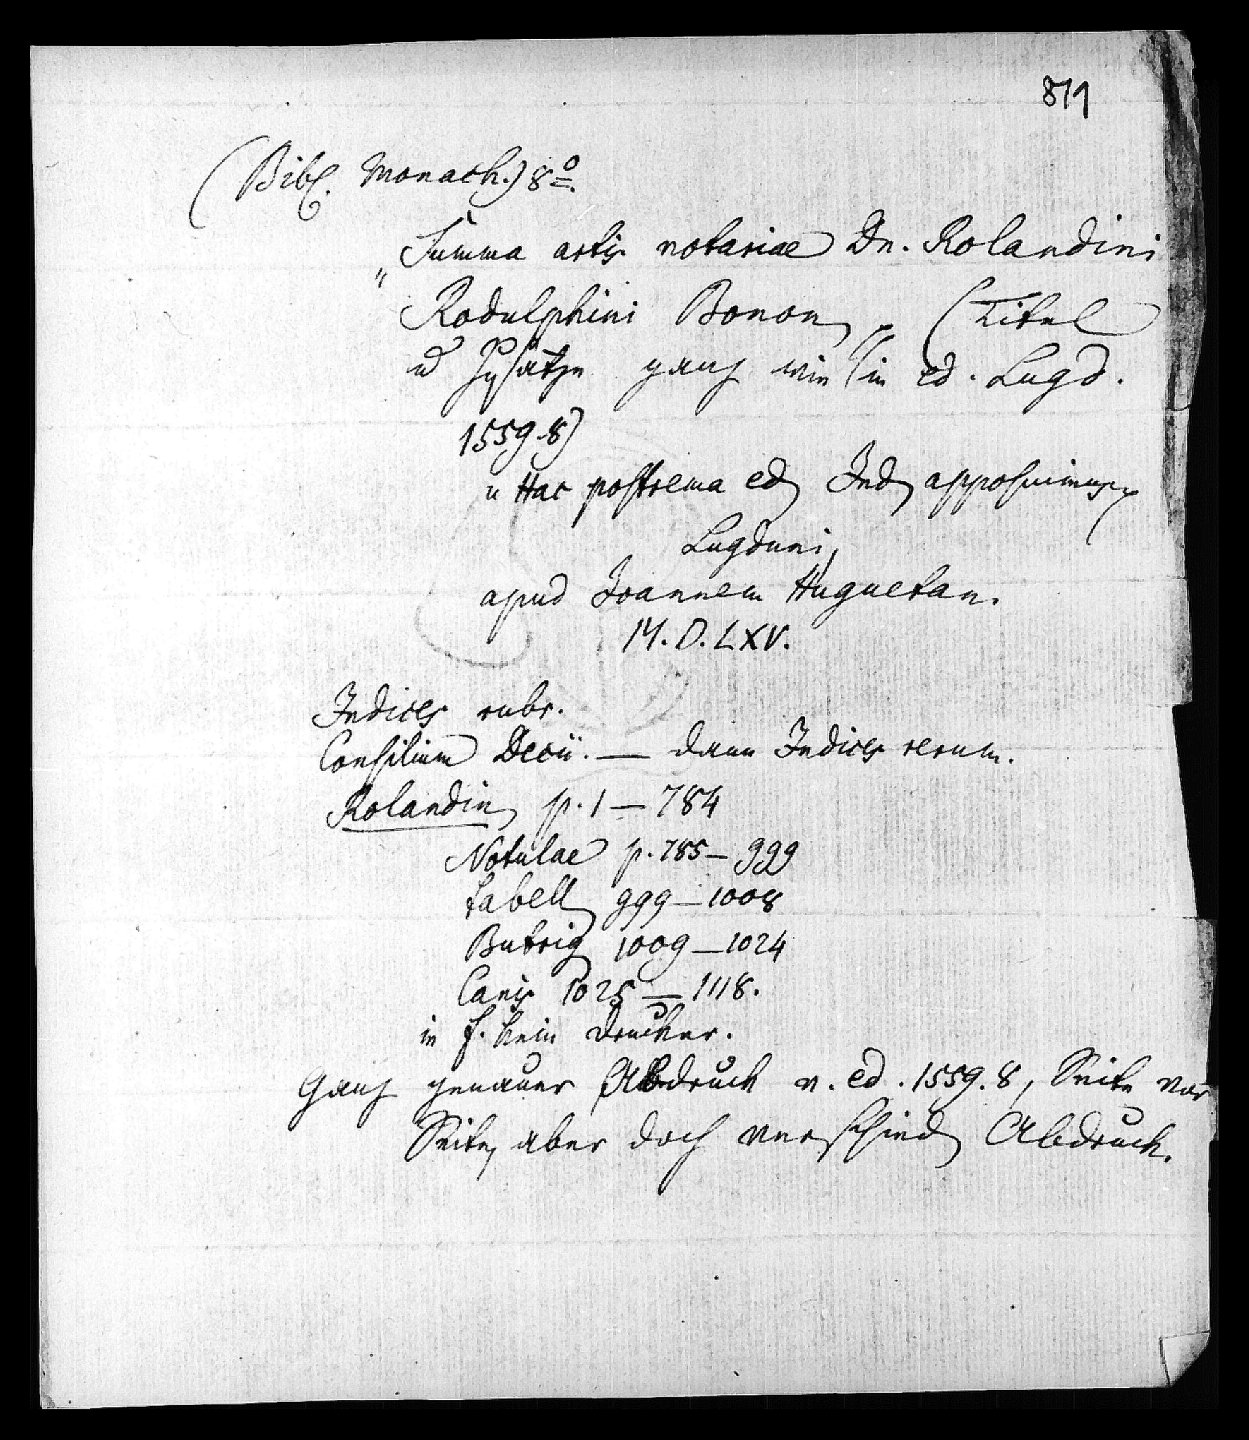 819
(Bibl. Monach.) 8º.
„Summa artis notariae Dn. Rolandini
Rodulphini Bonon." (Titel
u Zusätze ganz wie in ed. Lugd.
1559.8)
„Hac postrema ed Ind apposuimus"
Lugduni,
apud Joannem Huguetan.
M.D.LXV.
Indices rubr.
Consilium Decii. — dann Indices rerum.
Rolandin p. 1 — 784
Notulae p. 785 — 999
tabell 999 — 1008
Butrig 1009 — 1024
Canis 1025 — 1118.
in f. kein Drucker.
Ganz genauer Abdruck v. ed. 1559.8, Seite vor
Seite, aber doch verschied Abdruck.